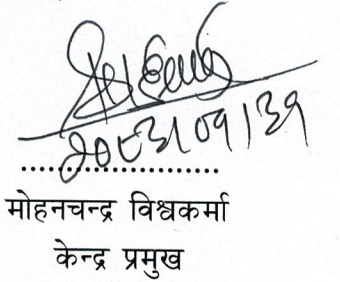 २०८३।०१।३१
मोहनचन्द्र विश्वकर्मा
केन्द्र प्रमुख